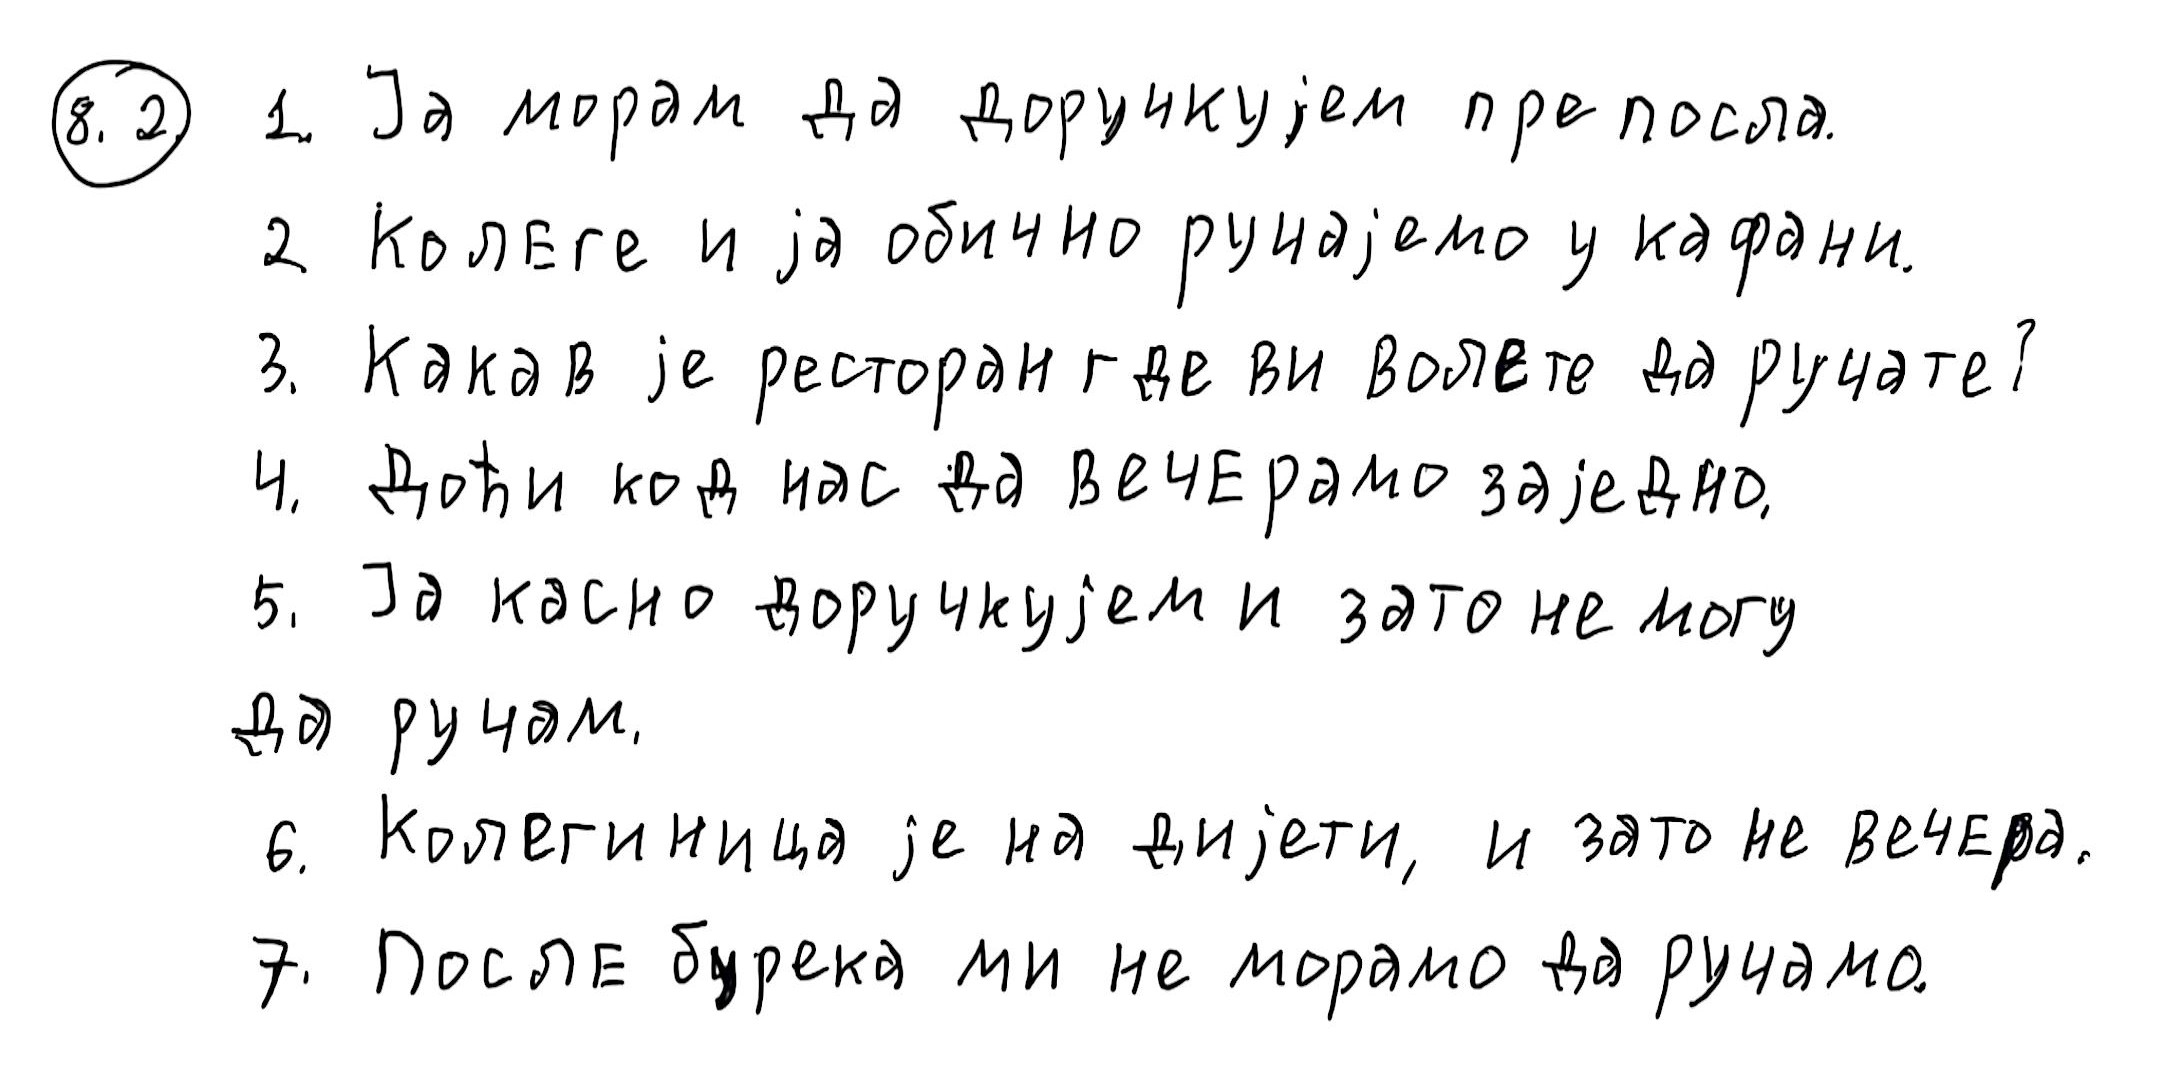 8.2. 1. Ја морам да доручкујем пре посла.
2 Колеге и ја обично ручајемо у кафани.
3. Какав је ресторан где ви волете да ручате?
4. Дођи код нас да вечерамо заједно.
5. Ја касно доручкујем и зато не могу
да ручам.
6. Колегиница је на дијети, и зато не вечера.
7. После бурека ми не морамо да ручамо.